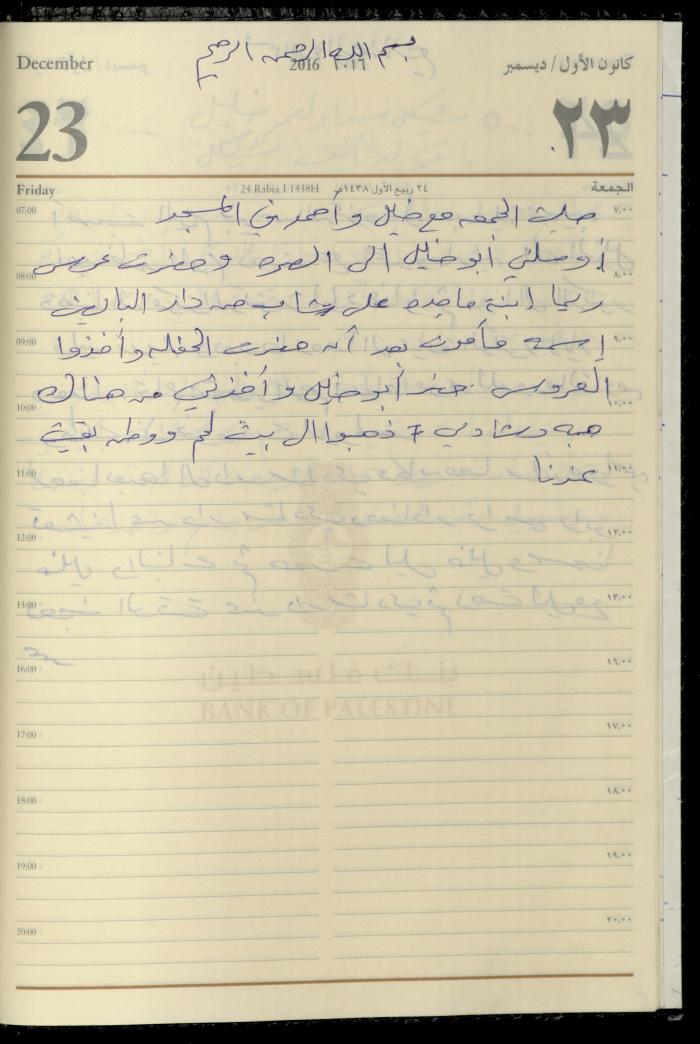 بسم الله الرحمن الرحيم
December 2016 ٢٠١٦ كانون الأول / ديسمبر
23 ٢٣
Friday 24 Rabia I 1438H ٢٤ ربيع الأول ١٤٣٨هـ الجمعة
07:00 صليت الجمعه مع خليل وأحمد في المسجد ٧,٠٠
أوصلني أبو خليل الى الصره وحضرت عرس
08:00 ٨,٠٠
ريما ابنة ماجده على شاب من دار
09:00 إسمه مأمون بعد أن حضرت الحفله وأخذوا ٩,٠٠
العروس حضر أبو خليل وأخذني من هناك
10:00 ١٠,٠٠
هبه وشادي ذهبوا ال بيت لحم ووطن بقيت
11:00 عندنا ١١,٠٠
12:00 ١٢,٠٠
13:00 ١٣,٠٠
16:00 ١٦,٠٠
بنك فلسطين
BANK OF PALESTINE
17:00 ١٧,٠٠
18:00 ١٨,٠٠
19:00 ١٩,٠٠
20:00 ٢٠,٠٠